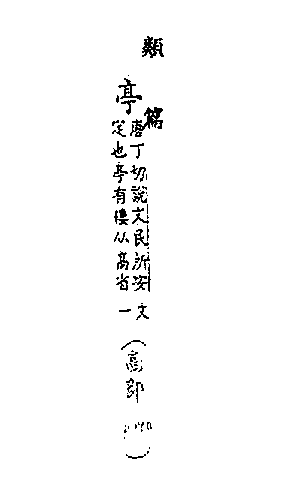 類
篇
亭
唐丁切說文民所安
定也亭有樓从高省
文一
(高部